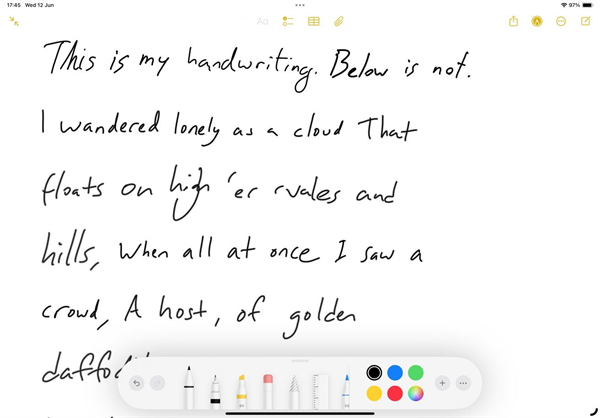 17:45 Wed 12 Jun
97%
Aa
This is my handwriting. Below is not.
I wandered lonely as a cloud That
floats on high 'er vales and
hills, When all at once I saw a
crowd, A host, of golden